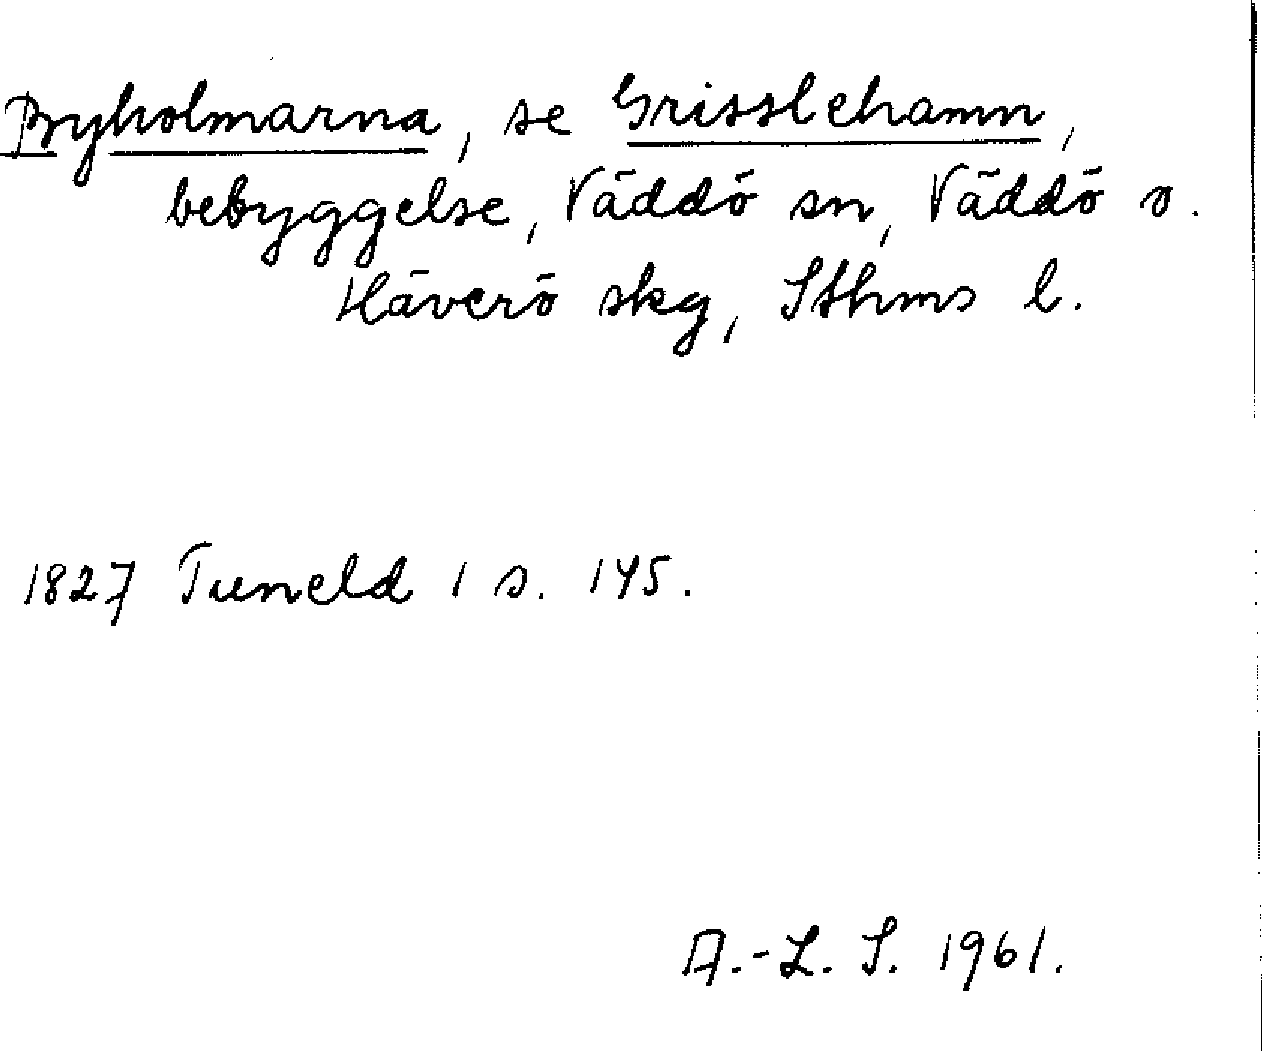 Byholmarna, se Grisslehamn,
bebyggelse, Väddö sn, Väddö o.
Häverö skg, Sthms l.
1827 Tuneld 1 s. 145.
A.-L. S. 1961.